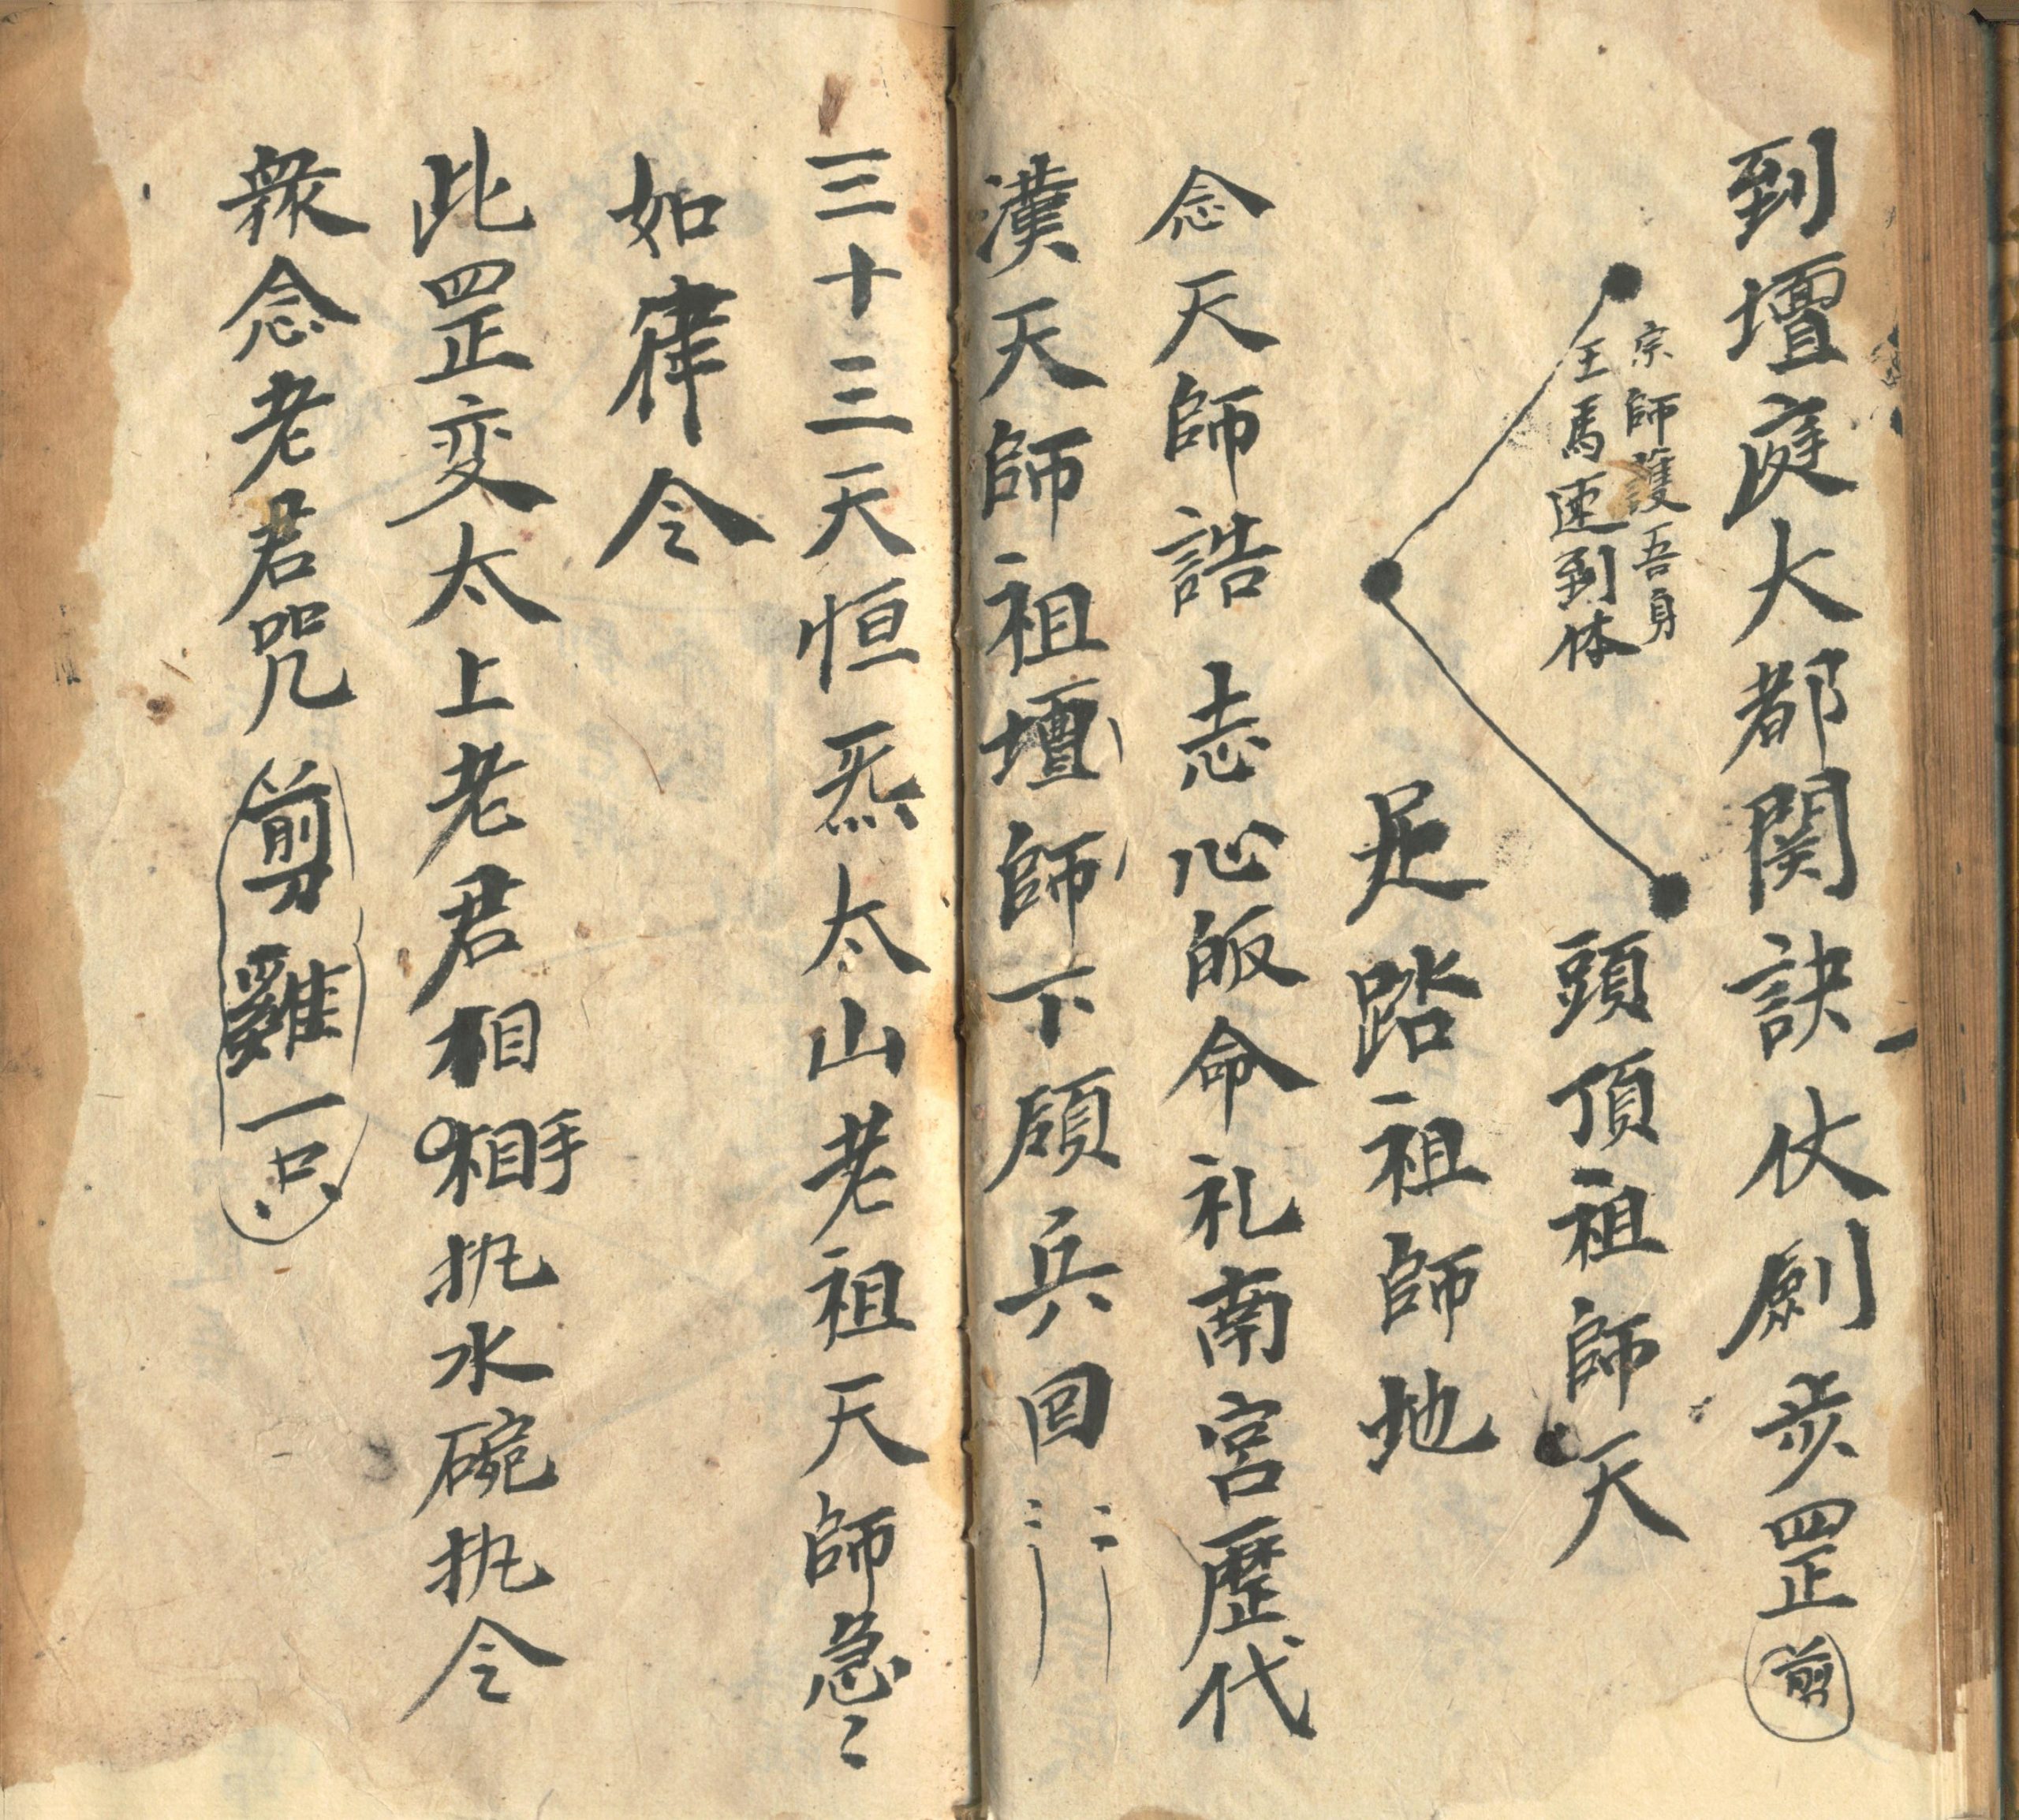 到壇庭大都関訣仗劍步罡剪
宗師護吾身
王馬速到体
頭頂祖師天
足踏祖師地
念天師誥志心皈命礼南宮歷代
漢天師祖壇師下領兵回
三十三天恒炁太山老祖天師急〻
如律令
此罡变太上老君相相手执水碗执令
衆念老君咒剪雞一只